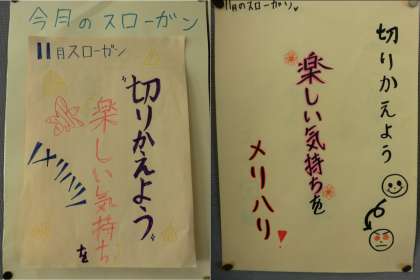 今月のスローガン
11月スローガン
切りかえよう
楽しい気持ちを
メリハリ
11月のスローガン
切りかえよう
楽しい気持ちを
メリハリ！